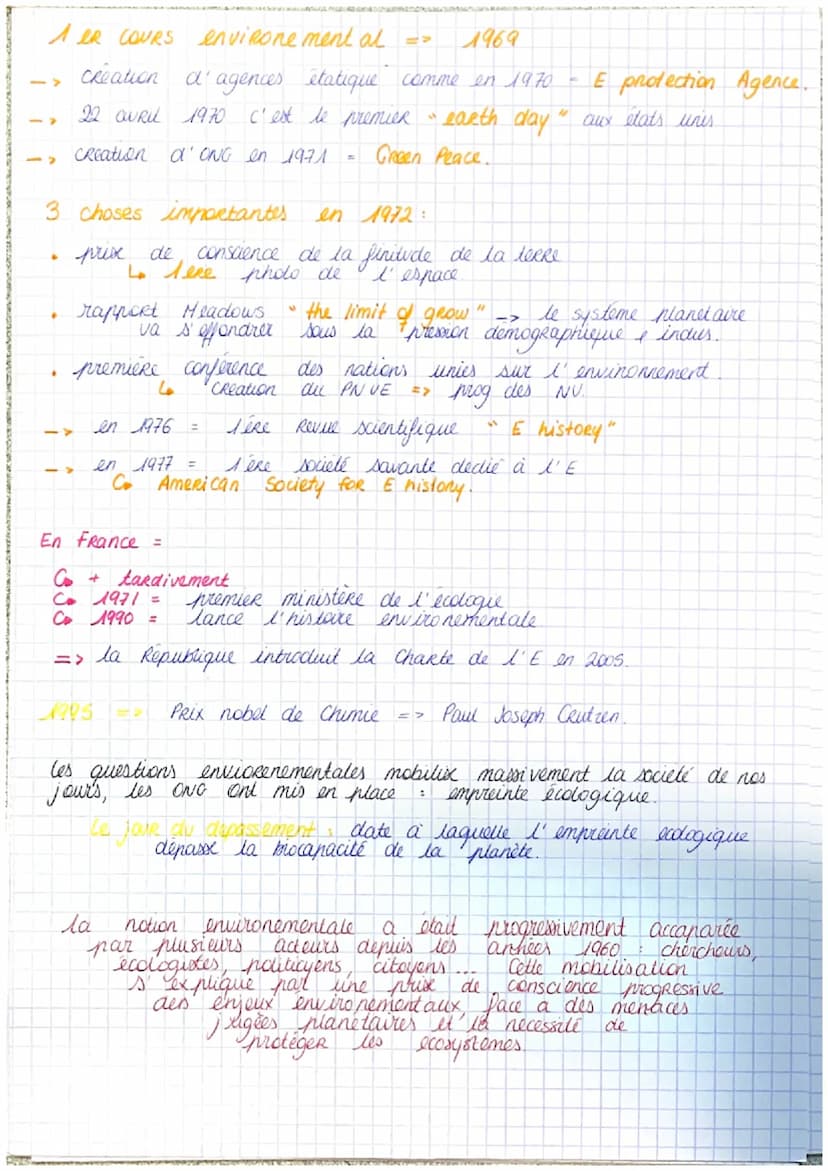 1 ER COURS environemental => 1969
-> création d'agences étatique comme en 1970 = E protection Agence.
-> 22 avril 1970 c'est le premier "earth day" aux états unis
-> création d'ONG en 1971 = Green Peace.
3 choses importantes en 1972 :
• prise de conscience de la finitude de la terre
↳ 1ère photo de l'espace
• rapport Meadows "the limit of grow" -> le système planétaire
va s'effondrer sous la pression démographique & indus.
• première conférence des nations unies sur l'environnement.
↳ création du PNUE => prog des NU.
-> en 1976 = 1ère Revue scientifique "E history"
-> en 1977 = 1ère société savante dédié à l'E
↳ American Society for E history.
En France =
↳ + tardivement
↳ 1971 = premier ministère de l'écologie
↳ 1990 = lance l'histoire environementale
=> la République introduit la Charte de l'E en 2005.
1995 => Prix nobel de Chimie => Paul Joseph Crutzen.
Les questions enviorenementales mobilise massivement la société de nos
jours, les ONG ont mis en place : empreinte écologique.
Le jour du dépassement : date à laquelle l'empreinte écologique
dépasse la biocapacité de la planète.
la notion environementale a était progressivement accaparée
par plusieurs acteurs depuis les années 1960 : chercheurs,
écologistes, politicyens, citoyens ... Cette mobilisation
s'explique par une prise de conscience progressive
des enjeux environementaux, face a des menaces
jugées planétaires et la nécessité de
protéger les écosystèmes.